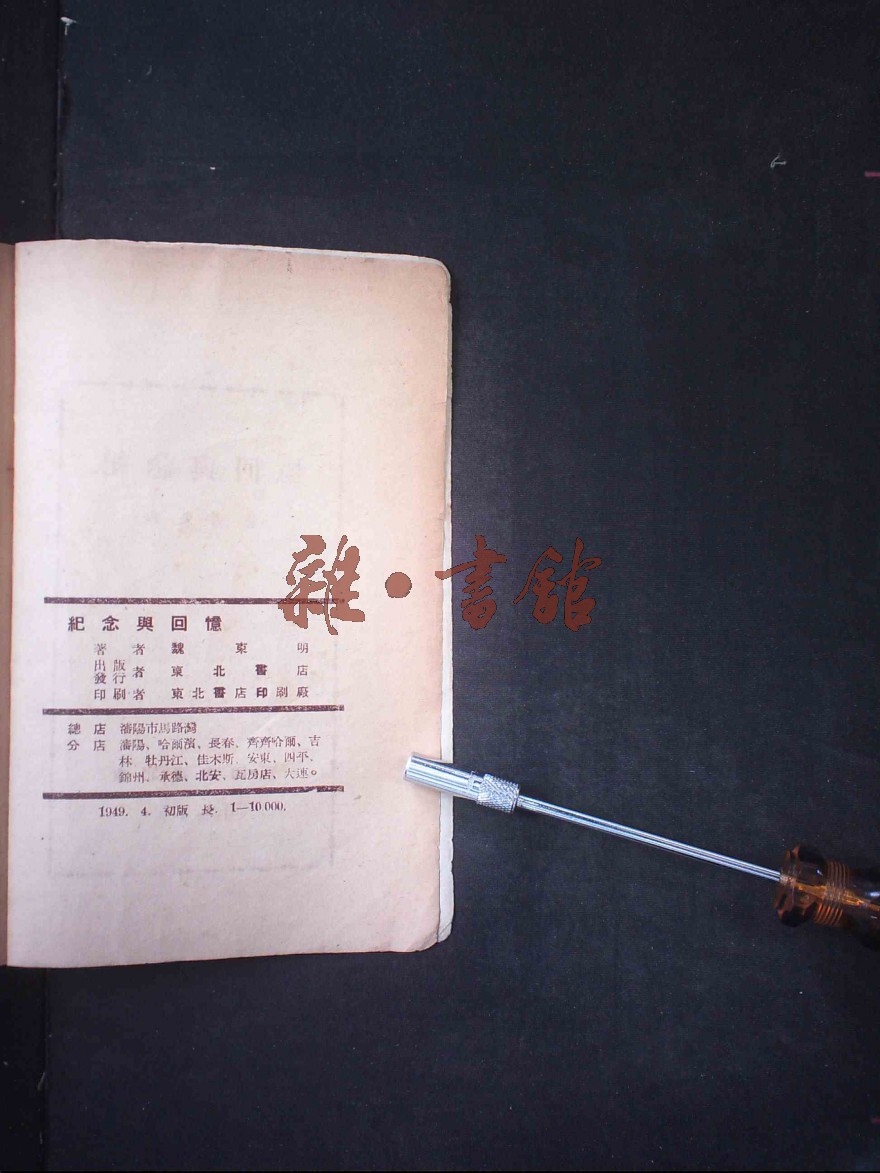 雜·書館
紀念與回憶
著者 魏東明
出版發行者 東北書店
印刷者 東北書店印刷廠
總店 瀋陽市馬路灣
分店 瀋陽、哈爾濱、長春、齊齊哈爾、吉
林、牡丹江、佳木斯、安東、四平、
錦州、承德、北安、瓦房店、大連。
1949. 4. 初版 長. 1—10.000.